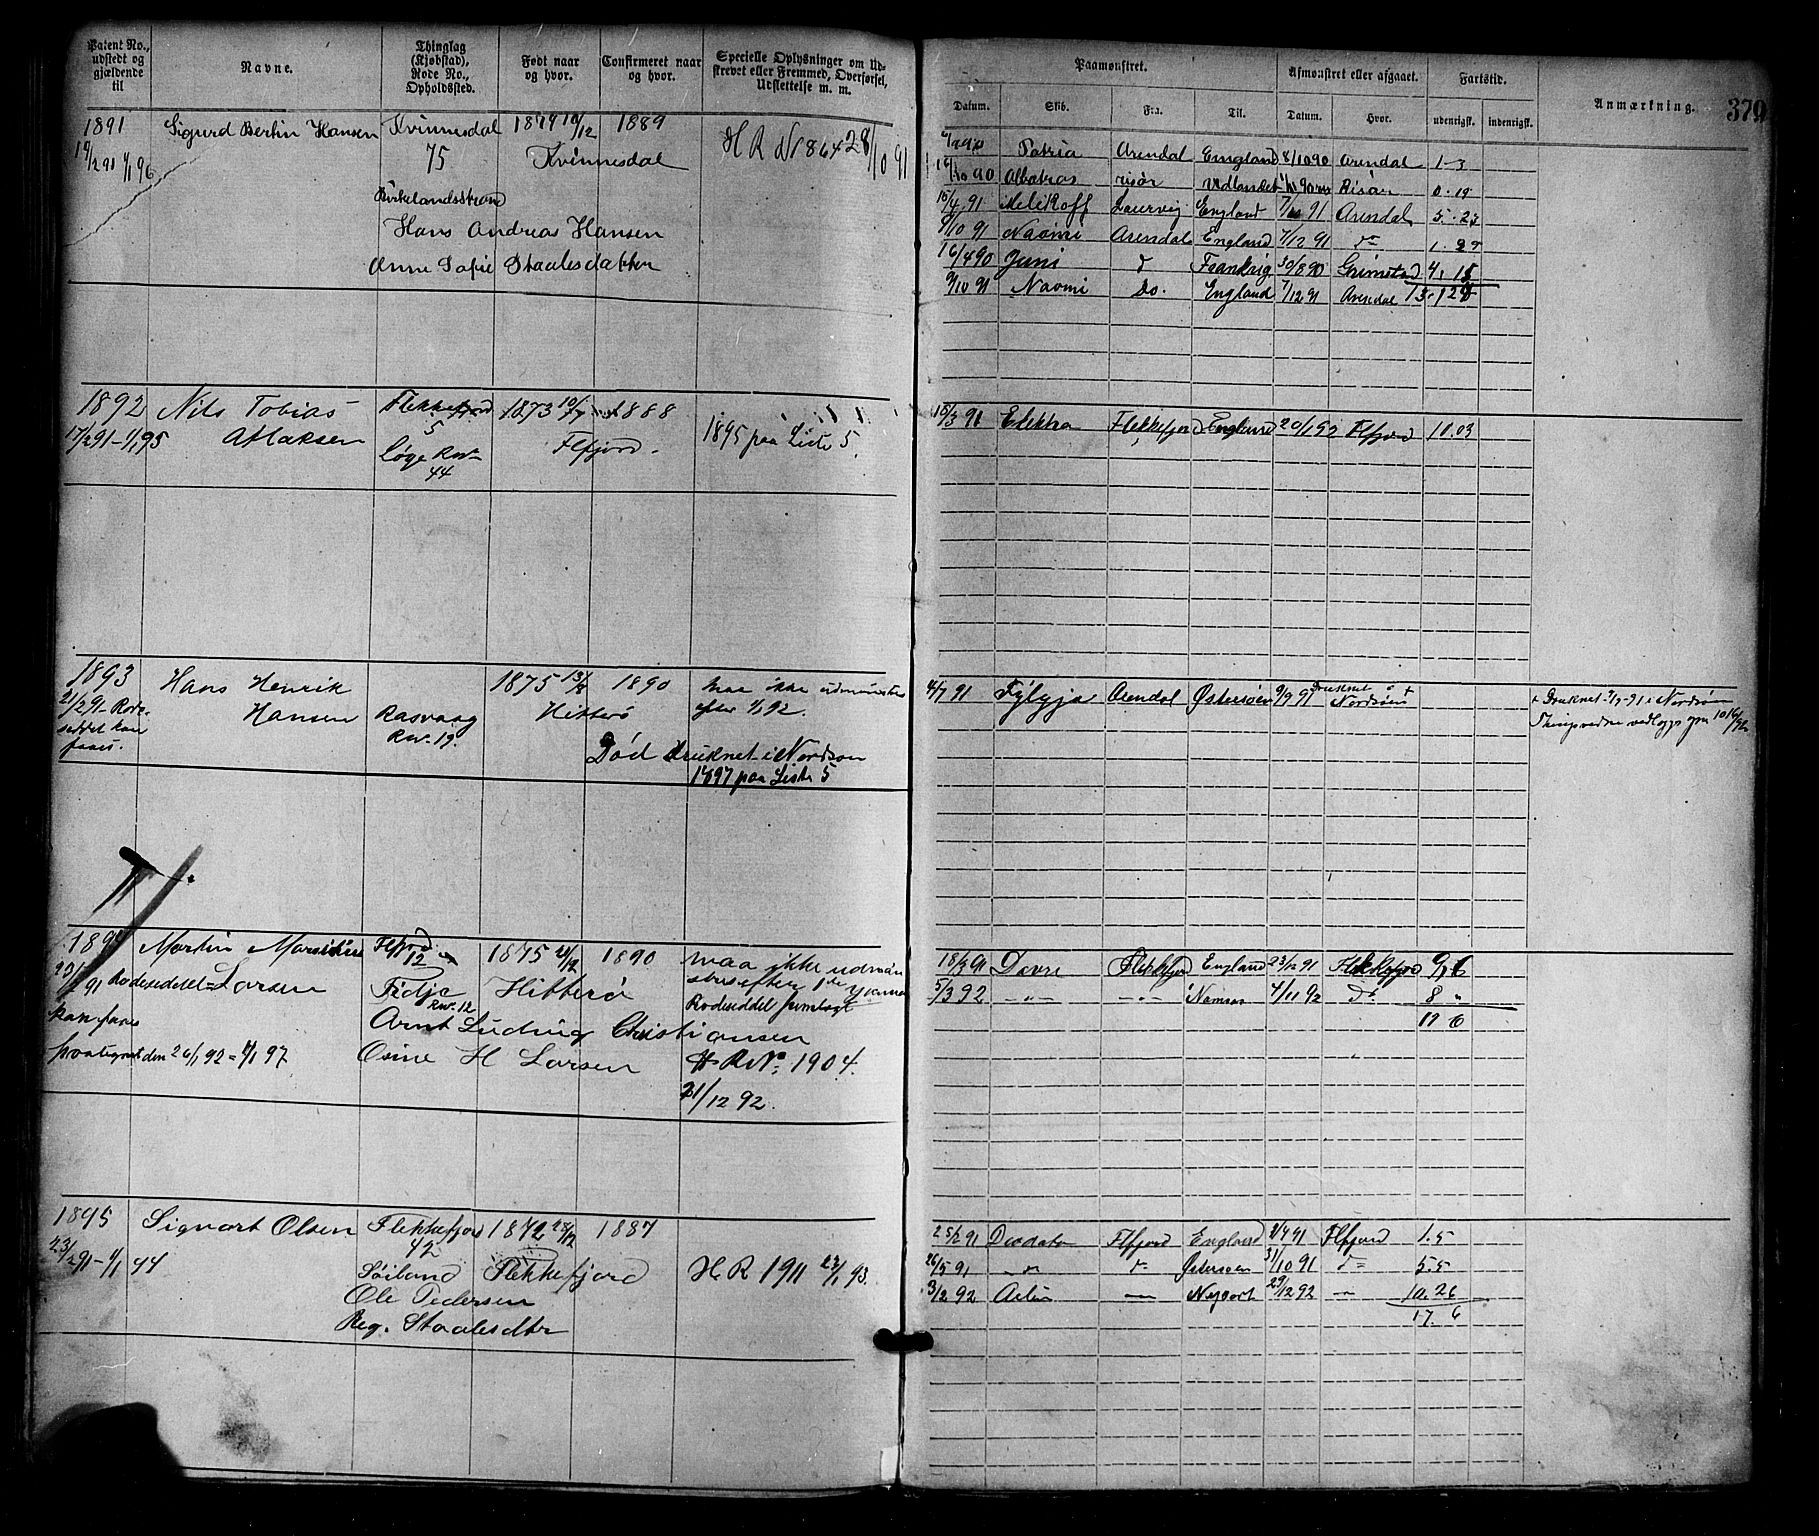 Patent No., udstedt og gjældende til
Navne.
Thinglag (Kjøbstad), Rode No., Opholdssted.
Født naar og hvor.
Confirmeret naar og hvor.
Specielle Oplysninger om Udskrevet eller Fremmed, Overførsel, Udslettelse m. m.
Paamønstret.
Afmønstret eller afgaaet.
Fartstid.
Anmærkning.
379
Datum.
Skib.
Fra.
Til.
Datum.
Hvor.
udenrigsk.
indenrigsk.
1891 Sigurd Bertin Hansen Kvinnesdal 1874 10/12 1889
19/2 91 1/1 96 75 Kvinnesdal H R No 864 28/10 91
Birkelandsstrand
Hans Andreas Hansen
Anne Sofie Staalesdatter
Patria Arendal England 8/10 90 Arendal 1-3
16/10 90 Albatros risør Udlandet Risør 0.19
15/4 91 Melikoff Laurvig England 91 Arendal 5.23
9/10 91 Naomi Arendal England 7/12 91 do 1.27
16/4 90 Juni d Frankrig 30/8 90 Grimstad 4.15
9/10 91 Naomi Do. England 7/12 91 Arendal
1892 Nils Tobias Flekkefjord 1873 10/7 1888
17/2 91-1/1 95 Aslaksen 5 Flfjord. 1895 paa Liste 5.
44
15/3 91 Elektra Flekkefjord England 20/1 92 Flfjord 10.03
1893 Hans Henrik 1875 13/8 1890 maa ikke udmønstres
21/2 91 Rode- Hansen Rasvaag Hitterø efter 1/1 92.
seddel kan Rno. 19.
faaes. Død druknet i Nordsøen
1897 paa Liste 5
4/7 91 Fylgja Arendal Østersøen 9/9 91 Druknet i Nordsøen
+ Druknet 9/9-91 i Nordsøen
1894 Martin Marsilius Flfjord 1875 1890 maa ikke udmøn-
91 Rodeseddel Larsen 12 Hitterø stres efter 1de Januar
kan faaes Fidje Rodeseddel fremlagt
Rno. 12
Arnt Ludvig Christiansen
paategnet den 26/1 92 = 1/1 97 Osine H Larsen H R No. 1904.
31/12 92.
18/3 91 Dovre Flekkefjord England 23/12 91 Flekkefjord 9,6
5/3 92 -"- -"- Namsos 4/11 92 do 8 "
17 6
1895 Sigvart Olsen Flekkefjord 1872 28/12 1887
23/2 91-1/1 94 42 Flekkefjord H R 1911 23/1 93.
Søiland
Ole Pedersen
Reg. Staalesdtr
25/2 91 Deodata Flfjord England Flfjord 1.5
26/5 91 -"- Østersøen 31/10 91 do 5.5
3/2 92 29/12 92 10.26
17. 6